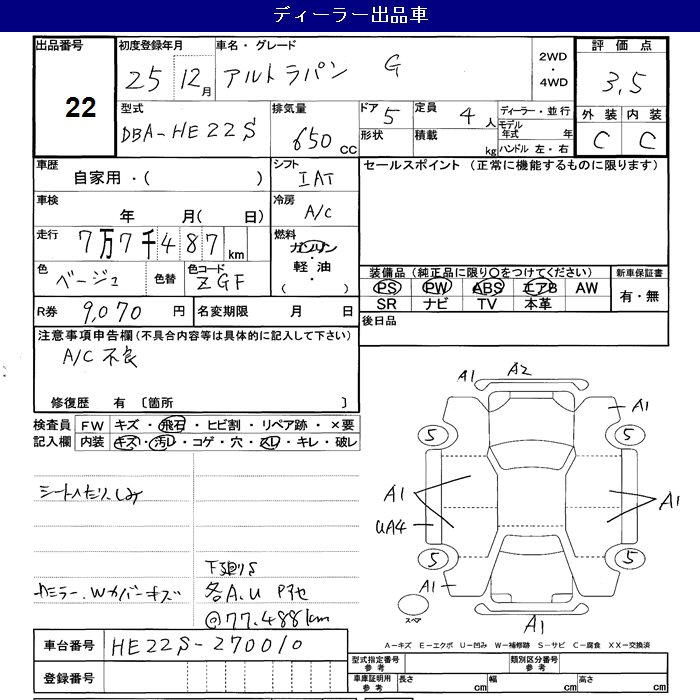 ディーラー出品車
出品番号 初度登録年月 車名・グレード 2WD ・ 4WD 評価点
22 25 12月 アルトラパン G 3.5
型式 排気量 ドア 5 定員 4人 ディーラー・並行 外装 内装
DBA-HE22S 650cc 形状 積載 kg モデル年式 年 ハンドル 左・右 C C
車歴 シフト セールスポイント (正常に機能するものに限ります)
自家用・( ) IAT
車検 冷房
年 月( 日) A/C
走行 7万7千487km 燃料 ガソリン 軽油 ・ ( )
色 ベージュ 色替 色コード ZGF
装備品 (純正品に限り○をつけてください) 新車保証書
PS PW ABS エアB AW 有・無
SR ナビ TV 本革
R券 9,070円 名変期限 月 日 後日品
注意事項申告欄 (不具合内容等は具体的に記入して下さい)
A/C 不良
修復歴 有 〔箇所 〕
検査員 FW キズ・飛石・ヒビ割・リペア跡・×要
記入欄 内装 キズ・汚レ・コゲ・穴・スレ・キレ・破レ
A1 A2
A1
5 5
A1 A1
UA4
5 5
A1
スペア A1
下廻りS
各A.U
@77.488km
車台番号 HE22S-270010
A-キズ E-エクボ U-凹み W-補修跡 S-サビ C-腐食 XX-交換済
登録番号 型式指定番号 参考 類別区分番号 参考
車庫証明用 参考 長さ cm 幅 cm 高さ cm